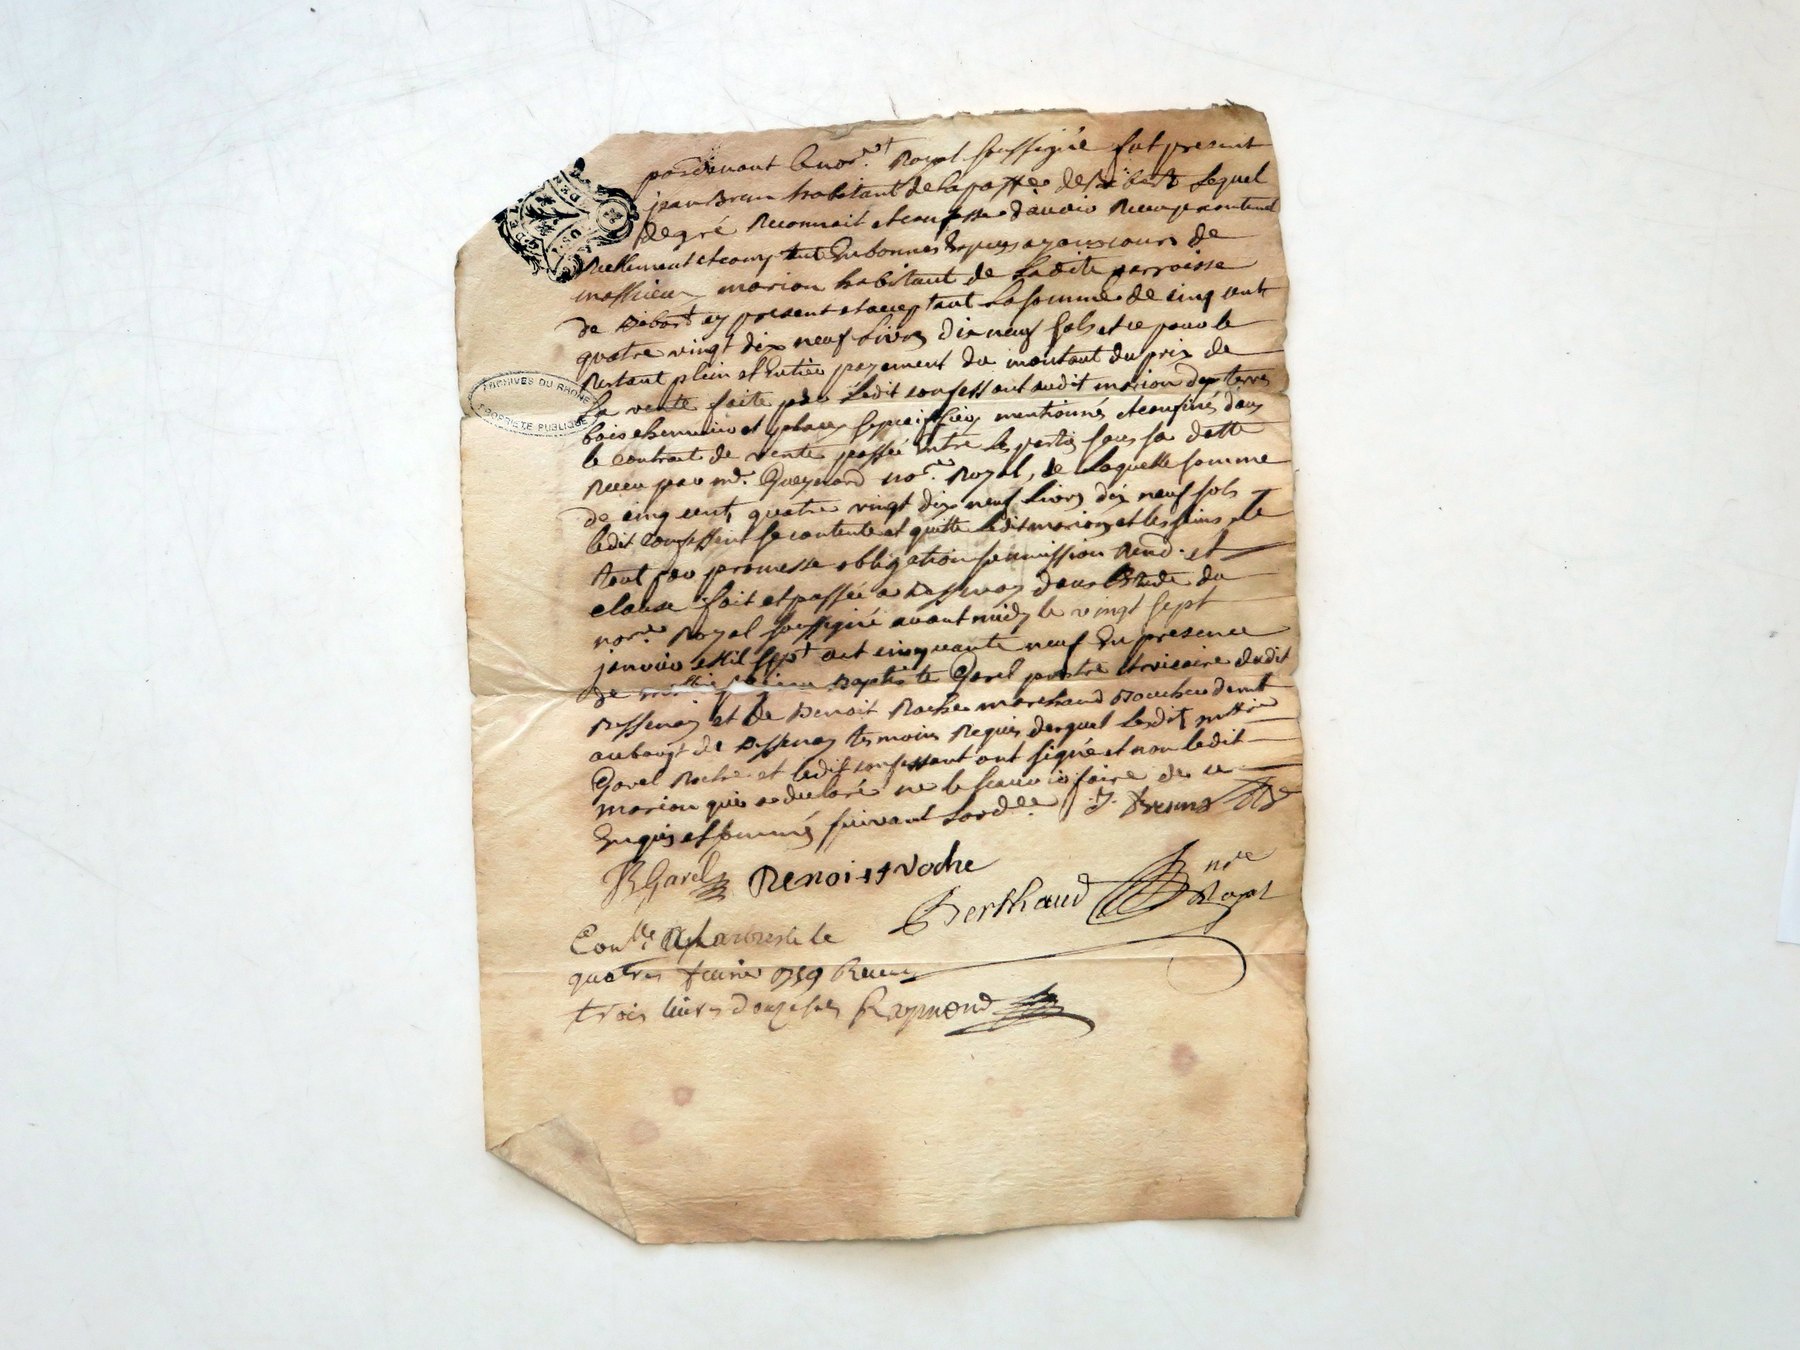 pardevant le nore Royal soussigné fut present
jean Brun habitant de la parsse de Bibost Lequel
de gré Reconnait et confesse d'avoir Receu presentement
Reellement et comptant En bonnes Especes ayant cours de
mathieu marion habitant de Ladite parroisse
de Bibost cy present et acceptant La somme de cinq cent
quatre vingt dix neuf Livres dix neuf sols et ce pour le
Restant plein et Entier payement du montant du prix de
La vente faite par Ledit confessant audit marion des terres
bois chemin et places mentionnés et confinés dans
le contrat de vente passé entre les parties sous sa datte
Receu par me. Gueynard nore Royal, de Laquelle somme
de cinq cent quatre vingt dix neuf Livres dix neuf sols
ledit Confessant se contente et quitte Ledit marion et les siens de
tout par promesse obligation soumission Rend. et
clause fait et passé a Bessenay dans L'Etude du
nore Royal soussigné avant midy le vingt sept
janvier Mil sept cent cinquante neuf En presence
de jean Baptiste Garel prestre et vicaire dudit
Bessenay et de Benoit Roche marchand Boucher demt
au bourg de Bessenay temoins Requis desquel Lesdits
Garel Roche et ledit confessant ont signé et non ledit
marion qui a declaré ne le scavoir faire de ce
Enquis et sommés suivant Lordce J. Brun
JB Garel Benoist Roche
Berthaud nre
Royal
Conlle A Larbresle le
quatre fevrier 1759 Receu
trois livres douze sols Raymond
ARCHIVES DU RHONE
PROPRIETE PUBLIQUE